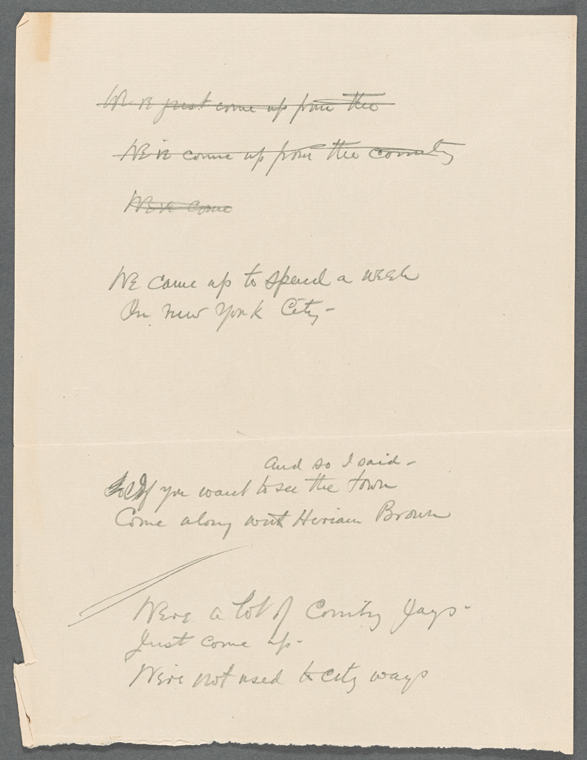 We've just come up from the
We've come up from the country
We've come
We came up to spend a week
In New York City -
And so I said -
If you want to see the town
Come along with Hiriam Brown
We're a lot of Country Jays -
Just come up -
We're not used to city ways